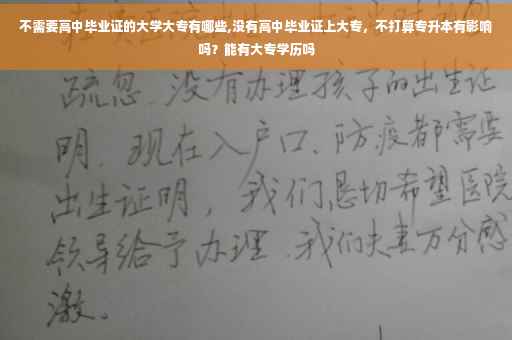 不需要高中毕业证的大学大专有哪些,没有高中毕业证上大专，不打算专升本有影响
吗？能有大专学历吗
疏忽、没有办理孩子的出生证
明、现在入户口、防疫都需要
出生证明，我们恳切希望医院
领导给予办理、我们夫妻万分感
激。